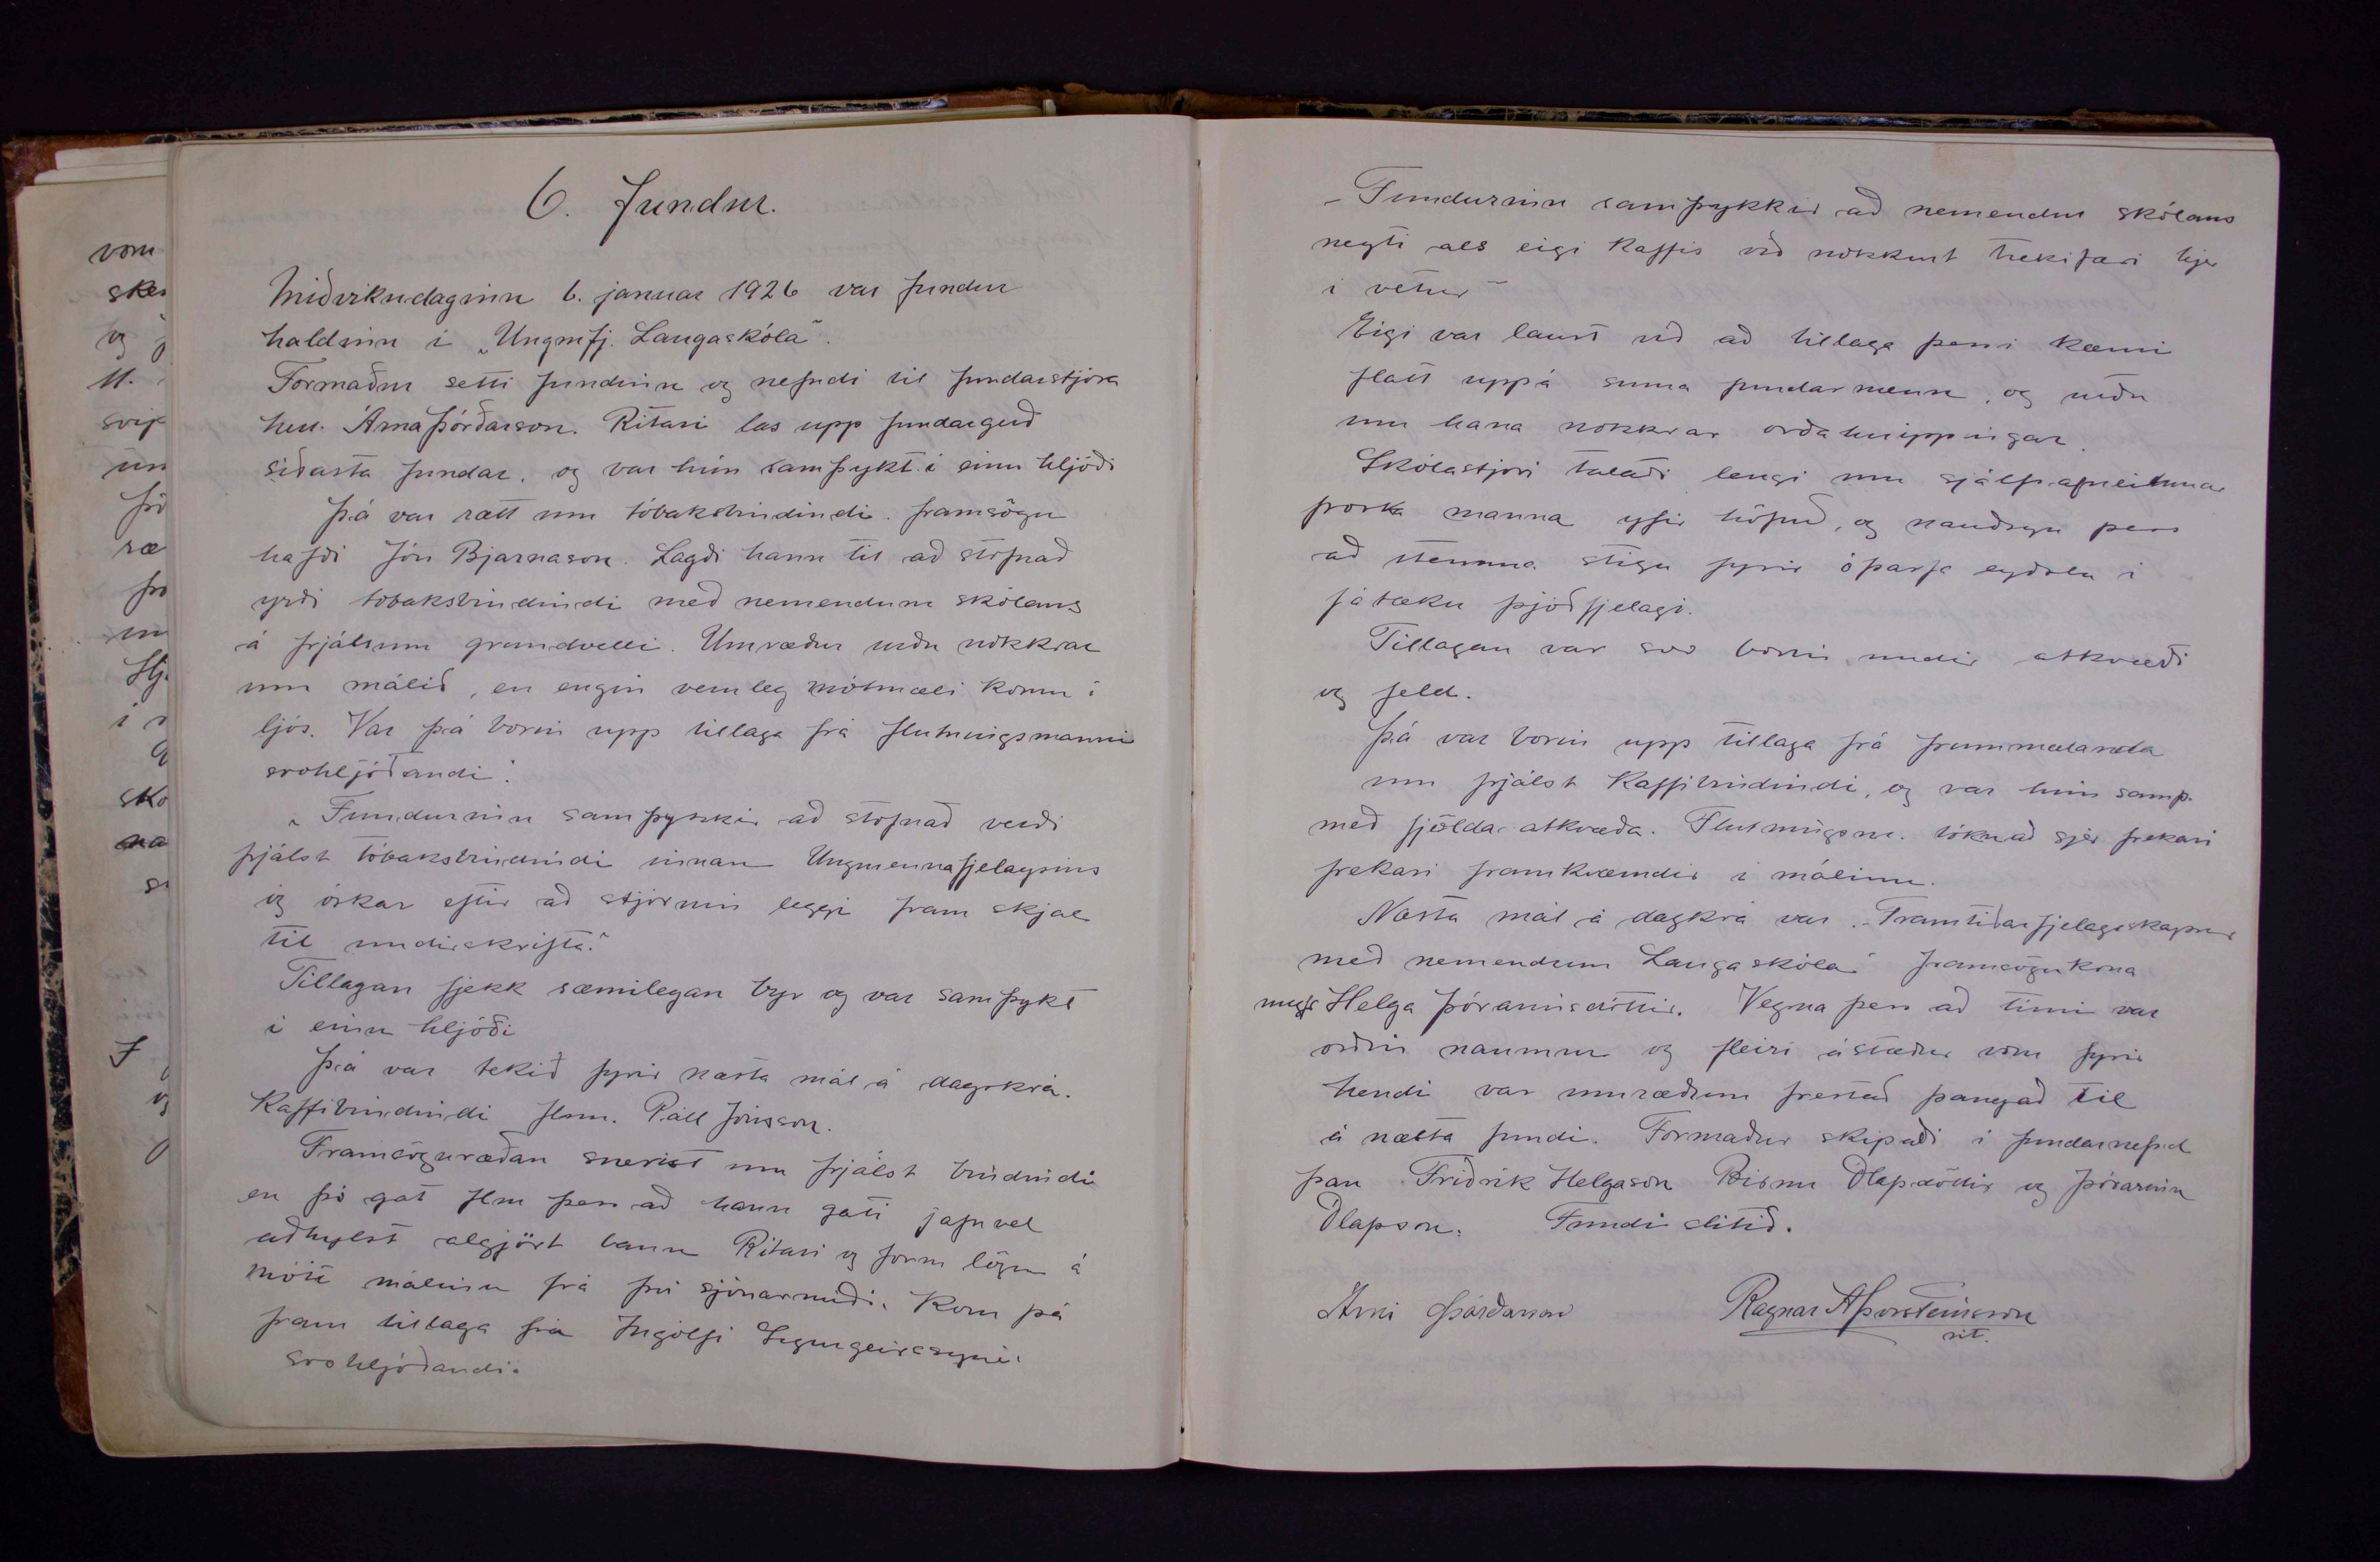 voru
sker
og j
M.
svip
un
þó
ræ
fra
Hj
sko
na
6. Fundur.
Miðvikudaginn 6. januar 1926 var fundur
haldinn í „Ungmfj. Laugaskóla".
Formaður setti fundinn og nefndi til fundarstjóra
hr. Árna Þórðarson. Ritari las upp fundargerð
síðasta fundar, og var hún samþykt í einu hljóði
Þá var rætt um tóbaksbindindi. framsögu
hafði Jón Bjarnason. Lagði hann til að stofnað
yrði tóbaksbindindi með nemendum skólans
á frjálsum grundvelli. Umræður urðu nokkrar
um málið, en engin veruleg mótmæli komu í
ljós. Var þá borin upp tillaga frá flutningsmanni
svohljóðandi:
„Fundurinn samþykkir að stofnað verði
frjálst tóbaksbindindi innan Ungmennafjelagsins
og óskar eftir að stjórnin leggi fram skjal
til undirskrifta."
Tillagan fjekk sæmilegan byr og var samþykt
í einu hljóði
Þá var tekið fyrir næsta mál á dagskrá.
Kaffibindindi flm. Páll Jónsson.
Framsöguræðan snerist um frjálst bindindi
en þó gat flm þess að hann gæti jafnvel
aðhylst algjört bann Ritari og form lögðu á
móti málinu frá því sjónarmiði. Kom þá
fram tillaga frá Ingólfi Sigurgeirssyni
svohljóðandi.
„Fundurinn samþykkir að nemendur skólans
neyti als eigi kaffis við nokkurt tækifæri hjer
í vetur"
Eigi var laust við að tillaga þessi kæmi
flatt uppá suma fundarmenn, og urðu
um hana nokkrar orðahnippingar.
Skólastjóri talaði lengi um sjálfsafneitunar
þroska manna yfir höfuð, og nauðsyn þess
að stemma stigu fyrir óþarfa eyðslu í
fátæku þjóðfjelagi.
Tillagan var svo borin undir atkvæði
og feld.
Þá var borin upp tillaga frá frummælanda
um frjálst kaffibindindi, og var hún samþ.
með fjölda atkvæða. Flutningsm. tók að sjer frekari
frekari framkvæmdir í málinu.
Næsta mál á dagkrá var „Framtíðarfjelagsskapur
með nemendum Laugaskóla" framsögukona
ungfr Helga Þórarinsdóttir. Vegna þess að tími var
orðin naumur og fleiri ástæður voru fyrir
hendi var umræðum frestað þangað til
á næsta fundi. Formaður skipaði í fundarnefnd
þau Friðrik Helgason Birnu Ólafsdóttir og Þórarinn
Ólafsson. Fundi slitið.
Árni Þórðarson
Ragnar A Þorsteinsson
rit.